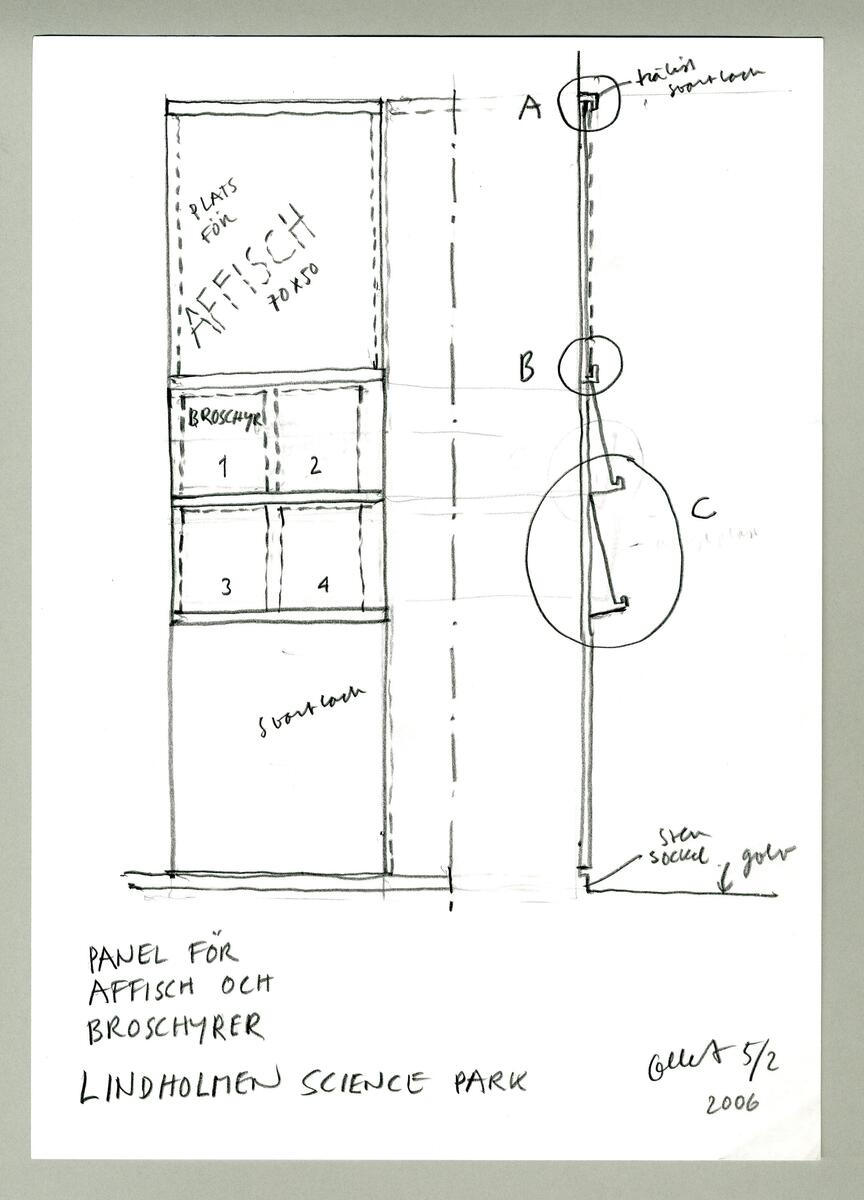 A
trälist
svartlack
PLATS
FÖR
AFFISCH
70 x 50
B
BROSCHYR
1
2
C
3
4
svartlack
Sten
sockel
golv
PANEL FÖR
AFFISCH OCH
BROSCHYRER
LINDHOLMEN SCIENCE PARK
5/2
2006